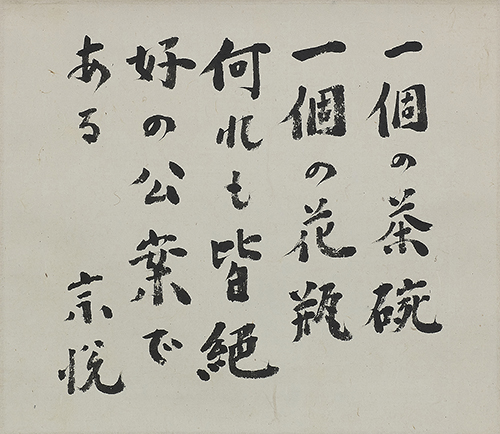 一個の茶碗
一個の花瓶
何れも皆絶
好の公案で
ある
宗悦